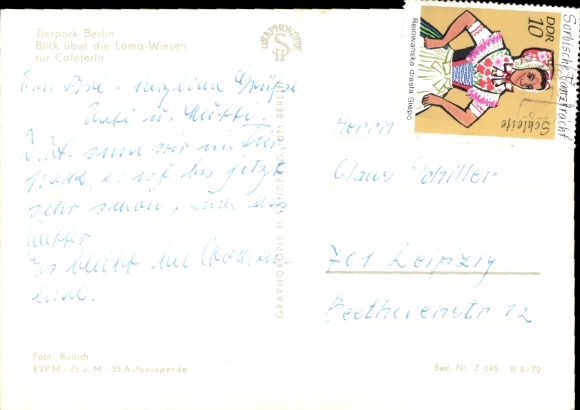 Tierpark Berlin
Blick über die Lama-Wiesen
zur Cafeteria
herzliche Grüße
Vati u. Mutti.
Z. Zt. sind wir im Tier
park, es ist bis jetzt
sehr schön, auch das
Wetter.
Es bleibt bei Wochen-
ende.
Foto: Buttich
EVP M -,25 u. M -,05 Aufbauspende
GRAPHOKOPIE
GRAPHOKOPIE H. SANDER KG, 1071 BERLIN
DDR
10
Sorbische Tanztracht
Schleife
Rejowanska drasta Slepo
Herrn
Claus Schiller
701 Leipzig
Beethovenstr 12
Best.-Nr. Z 646 B 8/70